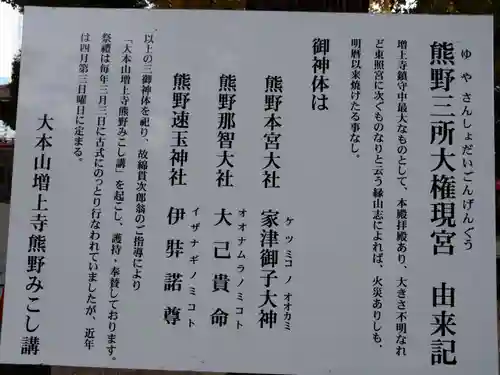 熊野三所大権現宮　由来記
ゆやさんしょだいごんげんぐう
増上寺鎮守中最大なものとして、本殿拝殿あり、大きさ不明なれ
ど東照宮に次ぐものなりと云う縁山志によれば、火災ありしも、
明暦以来焼けたる事なし。
御神体は
熊野本宮大社　家津御子大神
ケツミコノオオカミ
熊野那智大社　大己貴命
オオナムラノミコト
熊野速玉神社　伊弉諾尊
イザナギノミコト
以上の三御神体を祀り、故綿貫次郎翁のご指導により
「大本山増上寺熊野みこし講」を起こし、護持・奉賛しております。
祭禮は毎年三月三日に古式にのっとり行なわれていましたが、近年
は四月第三日曜日に定まる。
大本山増上寺熊野みこし講